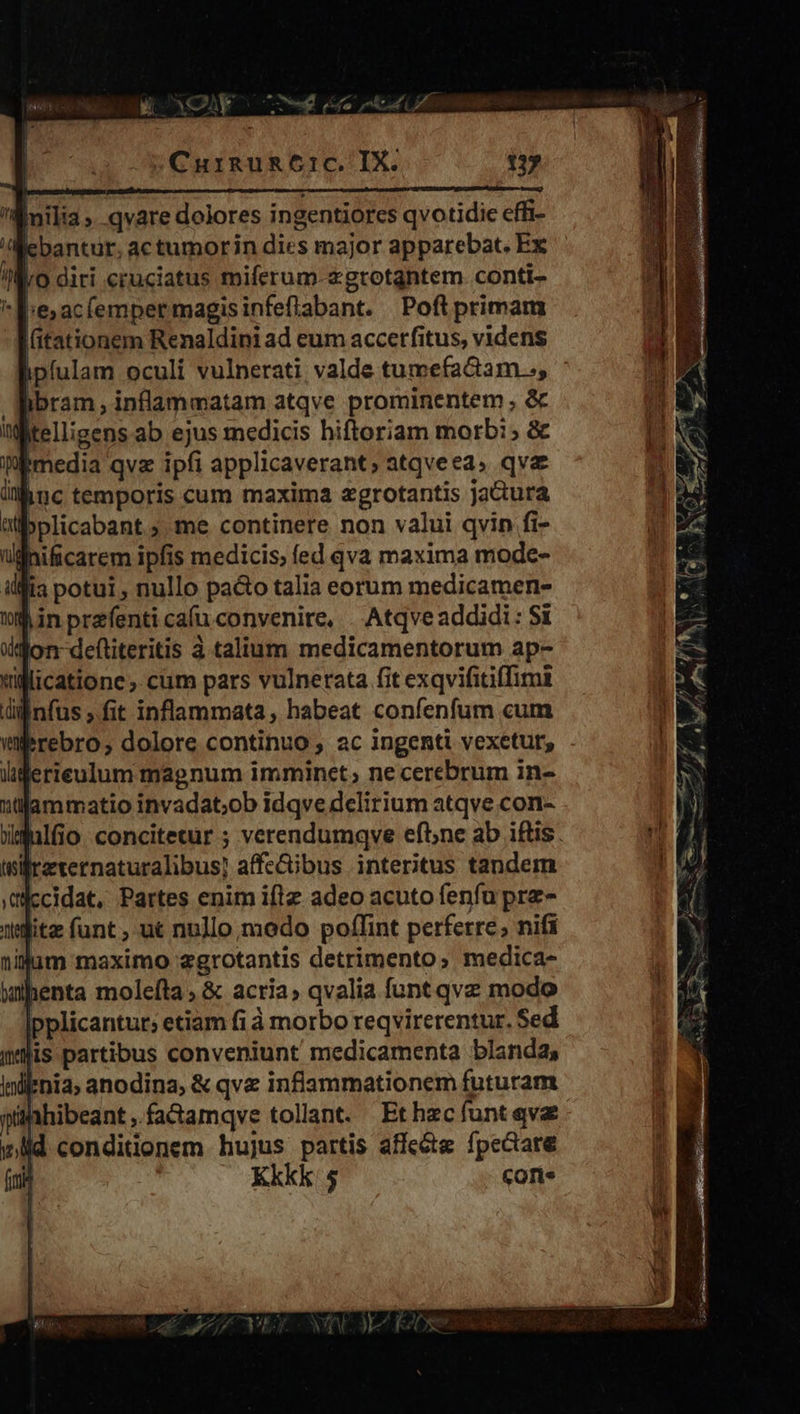 CHIRURGIC. IX. 137
milia, qvare dolores ingentiores qvotidie effi-
ebantur, ac tumor in dies major apparebat. Ex
diri cruciatus miſerum ægrotantem conti-
ac ſemper magis infeſtabant. Poſt primam
ſitationem Renaldini ad eum accerſitus, videns
pſulam oculi vulnerati valde tumefactam,
bram, inflammatam atqve prominentem, &
telligens ab ejus medicis hiſtoriam morbi, &
media qvæ ipſi applicaverant, atqve ea, qvæ
nc temporis cum maxima ægrotantis jactura
plicabant, me continere non valui qvin ſi-
nificarem ipſis medicis, ſed qva maxima mode-
ia potui, nullo pacto talia eorum medicamen-
in præſenti caſu convenire. Atqve addidi: Si
on deſtiteritis à talium medicamentorum ap-
licatione, cum pars vulnerata ſit exqviſitiſſimi
nſus, ſit inflammata, habeat conſenſum cum
rebro, dolore continuo, ac ingenti vexetur,
ericulum magnum imminet, ne cerebrum in-
ammatio invadat, ob idqve delirium atqve con-
ulſio concitetur; verendumqve eſt, ne ab iſtis
ræternaturalibus affectibus interitus tandem
ccidat. Partes enim iſtæ adeo acuto ſenſu præ-
itæ ſunt, ut nullo modo poſſint perferre, niſi
um maximo ægrotantis detrimento, medica-
enta moleſta, & acria, qvalia ſunt qvæ modo
pplicantur, etiam ſi à morbo reqvirerentur. Sed
is partibus conveniunt medicamenta blanda,
nia, anodina, & qvæ inflammationem futuram
hibeant, factamqve tollant. Et hæc ſunt qvæ
d conditionem hujus partis affectæ ſpectare
Kkkk 5 con-